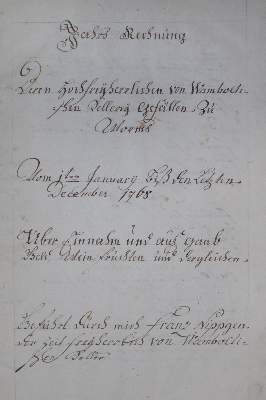 Jahrs Rechnung
Deren Hochfreyherrlichen von Wambolti-
schen Kellerey Gefällen Zu
Worms
Vom 1ten January biß den Letzten
December 1768
Über Einnahm und auß gaab
Wein früchten und dergleichen
durch mich Franz
der Zeit freyherrlich von Wambolti-